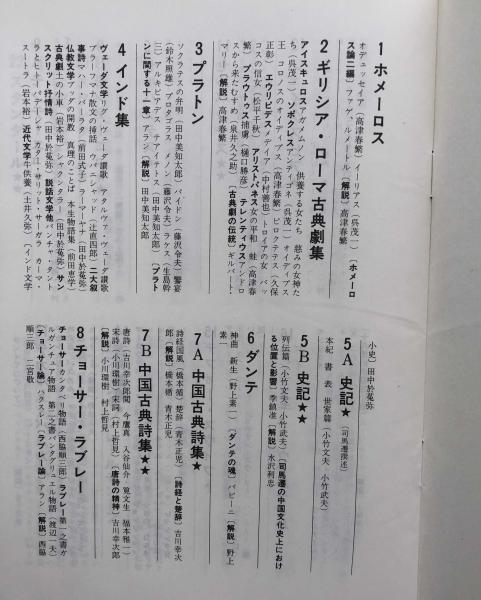 1 ホメーロス
オデュッセイア（高津春繁） イーリアス（呉茂一） 〔ホメーロ
ス論二編〕ファゲ、ルメートル〔解説〕高津春繁
2 ギリシア・ローマ古典劇集
アイスキュロス アガメムノーン 供養する女たち 慈みの女神た
ち（呉茂一） ソポクレス アンティゴネ（呉茂一） オイディプス
王 コロノスのオイディプス（高津春繁） ピロクテテス（久保
正彰） エウリピデス メデイア（中村善也） トロイアの女 バッ
コスの信女（松平千秋） アリストパネス 女の平和 蛙（高津春
繁） プラウトゥス 捕虜（樋口勝彦） テレンティウス アンドロ
スから来たむすめ（泉井久之助） 〔古典劇の伝統〕ギルバート・
マリー〔解説〕高津春繁
3 プラトン
ソクラテスの弁明（田中美知太郎） パイドン（藤沢令夫） 饗宴
（鈴木照雄） プロタゴラス メノン（藤沢令夫） ラケス（生島幹
三） アルキビアデス テアイテトス（田中美知太郎） 〔プラト
ンに関する十一章〕アラン〔解説〕田中美知太郎
4 インド集
ヴェーダ文学 リグ・ヴェーダ讃歌 アタルヴァ・ヴェーダ讃歌
ブラーフマナ散文の挿話 ウパニシャッド（辻直四郎） 二大叙
事詩 マハーバーラタ（前田式子） ラーマーヤナ（田中於菟弥）
仏教文学 ブッダ開教 真理のことば 本生物語集（前田恵学）
古典劇 土の小車（岩本裕） シャクンタラー（田中於菟弥） サン
スクリット抒情詩（田中於菟弥） 説話文学他 パンチャ・タント
ラとヒトーパデーシャ カター・サリット・サーガラ カーマ・
スートラ（岩本裕） 近代文学 牛供養（土井久弥） 〔インド文学
小史〕田中於菟弥
5A 史記★
（司馬遷撰述）
本紀 書 表 世家篇（小竹文夫 小竹武夫）
5B 史記★★
列伝篇（小竹文夫 小竹武夫） 〔司馬遷の中国文化史上におけ
る位置と影響〕李鎮淮〔解説〕水沢利忠
6 ダンテ
神曲 新生（野上素一） 〔ダンテの魂〕パピーニ〔解説〕野上
素一
7A 中国古典詩集★
詩経国風（橋本循） 楚辞（青木正児） 〔詩経と楚辞〕吉川幸次
郎〔解説〕橋本循 青木正児
7B 中国古典詩集★★
唐詩（吉川幸次郎 今鷹真 入谷仙介 筧文生 福本雅一）
宋詩（小川環樹） 宋詞（村上哲見） 〔唐詩の精神〕吉川幸次郎
〔解説〕小川環樹 村上哲見
8 チョーサー・ラブレー
チョーサー カンタベリ物語（西脇順三郎） ラブレー 第一之書ガ
ルガンチュア物語 第二之書パンタグリュエル物語（渡辺一夫）
〔チョーサー論〕ハクスレー〔ラブレー論〕アラン〔解説〕西脇
順三郎 二宮敬